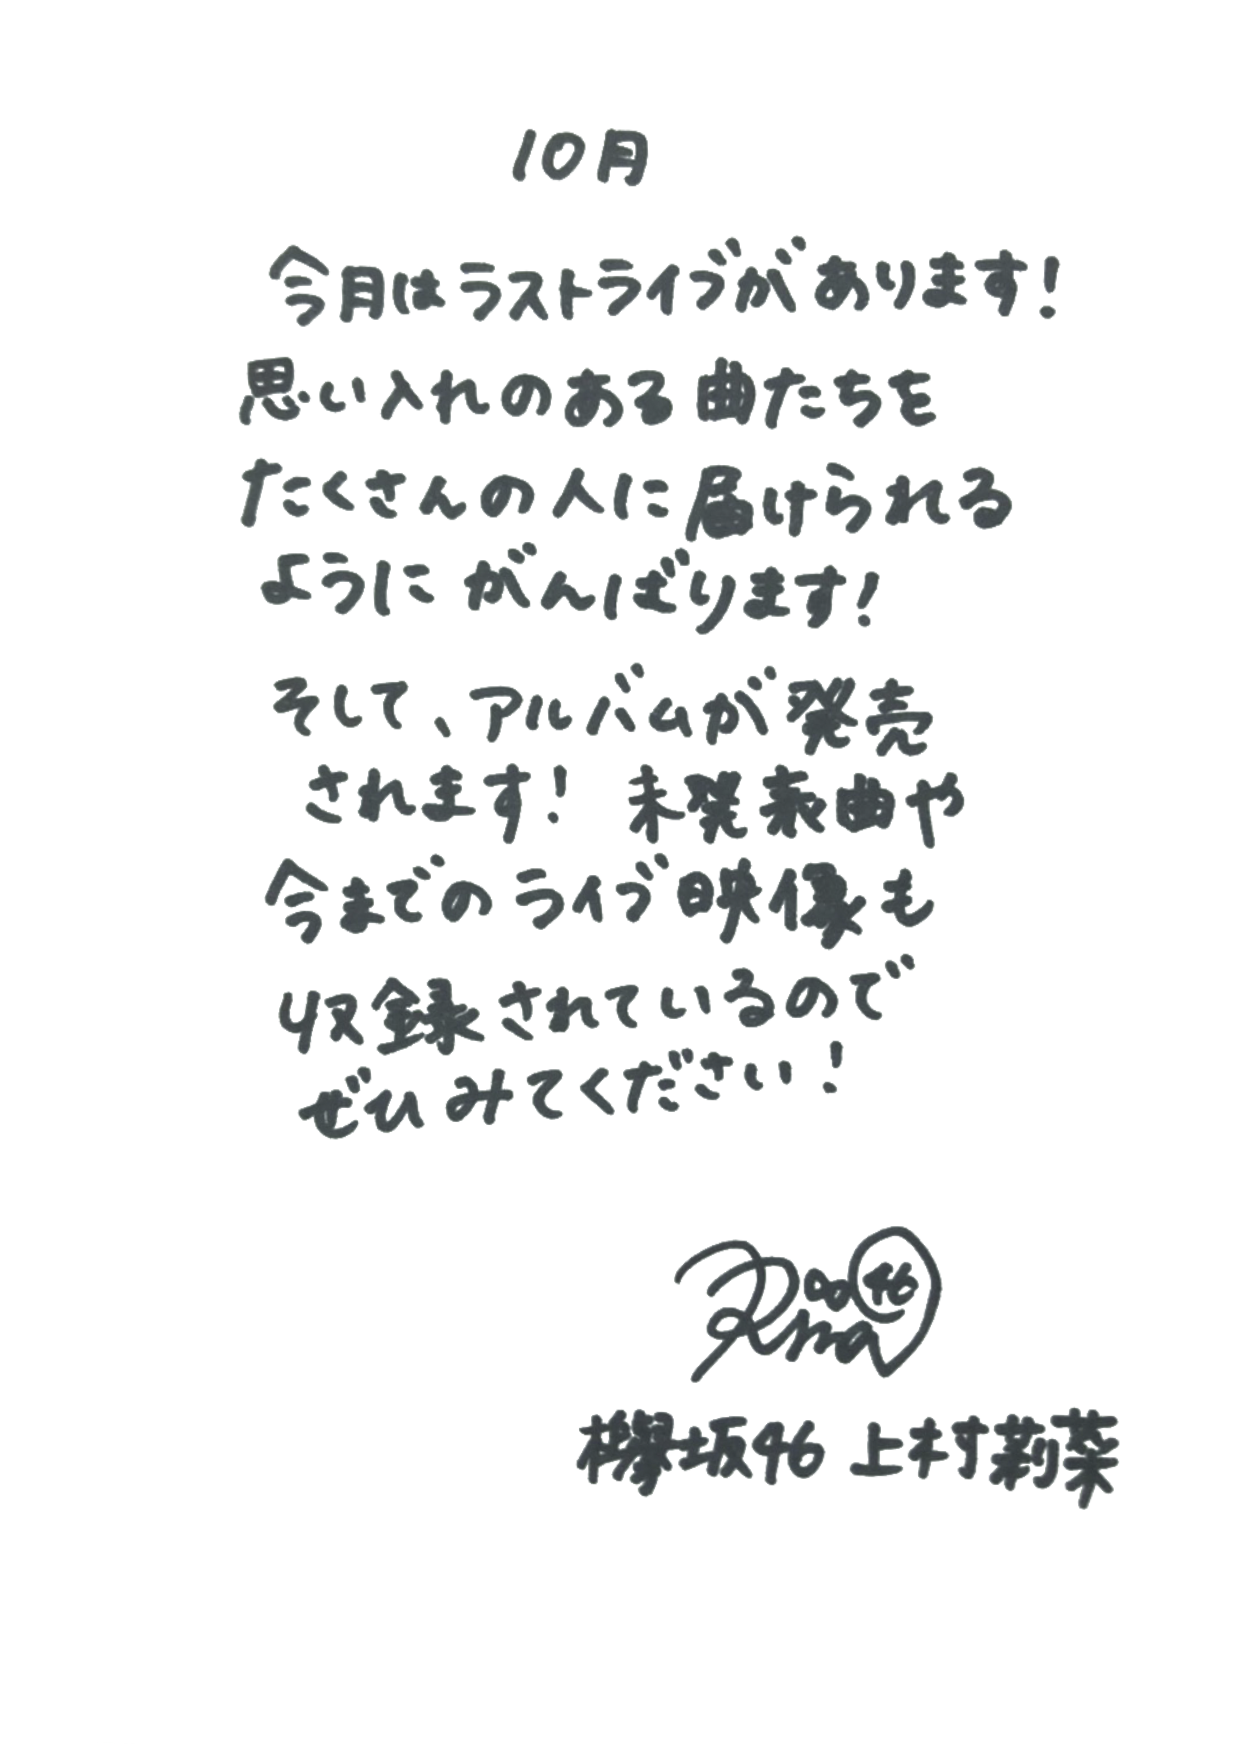 10月
今月はラストライブがあります!
思い入れのある曲たちを
たくさんの人に届けられる
ようにがんばります!
そして、アルバムが発売
されます! 未発表曲や
今までのライブ映像も
収録されているので
ぜひみてください!
Rina
46
欅坂46 上村莉菜